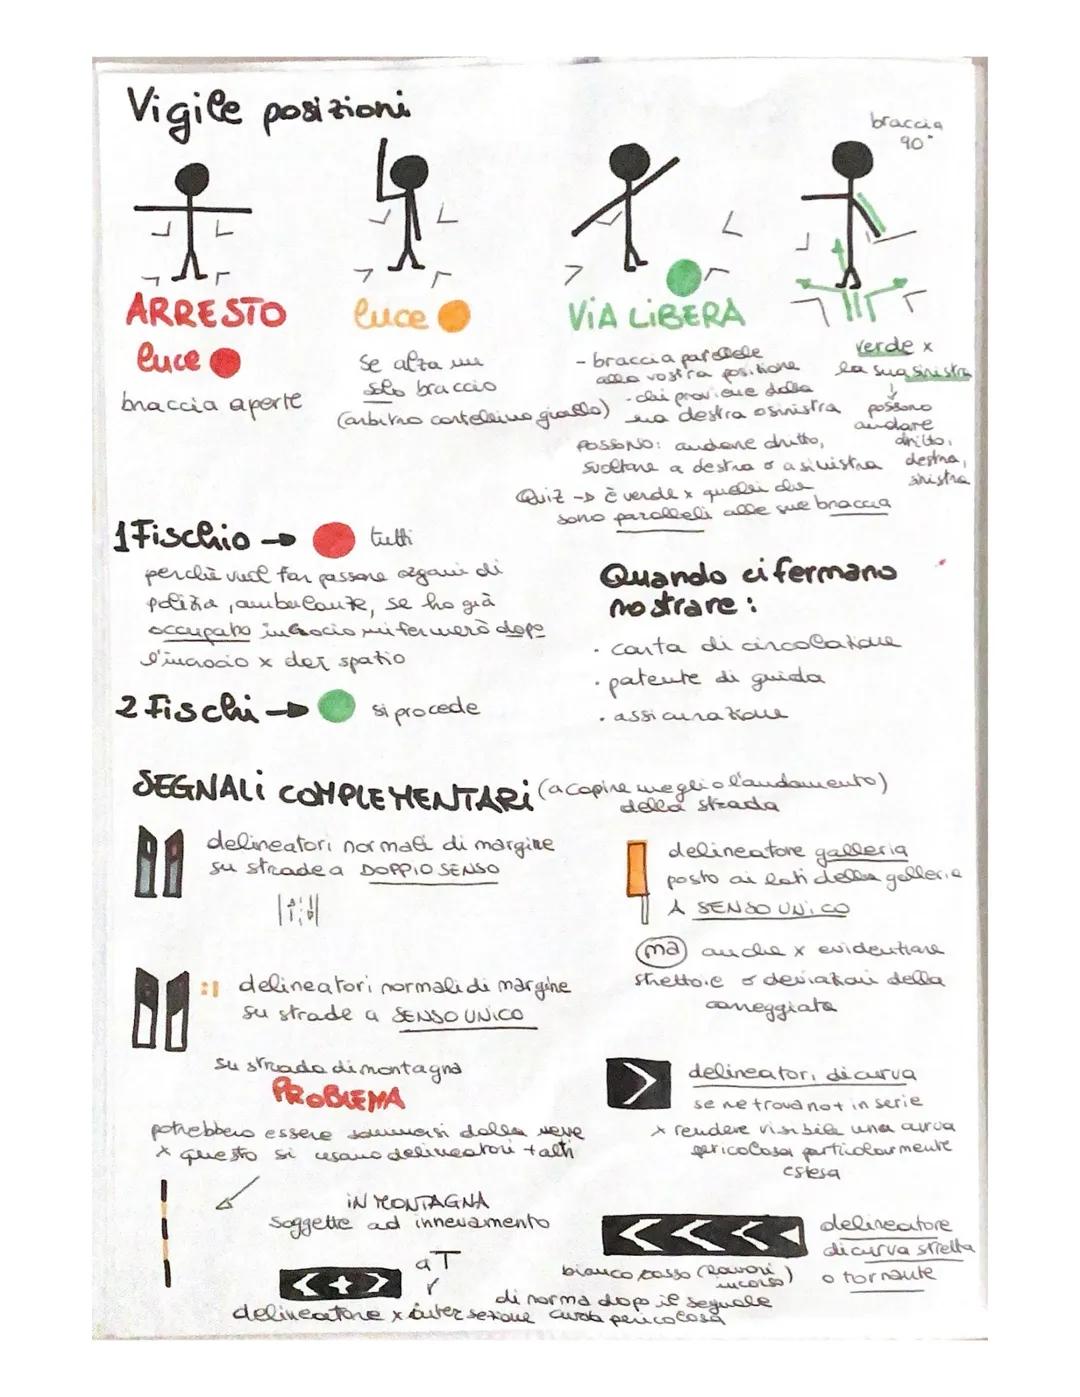 Vigile posizioni
braccia
90°
ARRESTO
luce
braccia aperte
luce
se alza un
solo braccio
(arbitro cartellino giallo)
VIA LIBERA
- braccia parallele
alla vostra posizione
- chi proviene dalla
sua destra o sinistra
POSSONO: andare dritto,
svoltare a destra o a sinistra
Quiz → è verde x quelli che
sono paralleli alle sue braccia
verde x
la sua sinistra
possono
andare
dritto,
destra,
sinistra
1 Fischio → tutti
perchè vuol far passare organi di
polizia, ambulanze, se ho già
occupato incrocio mi fermerò dopo
l'incrocio x dar spazio
2 Fischi → si procede
Quando ci fermano
mostrare:
. carta di circolazione
. patente di guida
. assicurazione
SEGNALI COMPLEMENTARI (a capire meglio l'andamento)
della strada
delineatori normali di margine
su strade a DOPPIO SENSO
delineatori normali di margine
su strade a SENSO UNICO
su strada di montagna
PROBLEMA
potrebbero essere sommersi dalla neve
x questo si usano delineatori + alti
IN MONTAGNA
soggette ad innevamento
a T
delineatore x intersezione
delineatore galleria
posto ai lati della galleria
A SENSO UNICO
ma anche x evidenziare
strettoie o deviazioni della
carreggiata
delineatori di curva
se ne trovano + in serie
x rendere visibile una curva
pericolosa particolarmente
estesa
delineatore
di curva stretta
o tornante
bianco rosso (lavori)
in corso
di norma dopo il segnale
curva pericolosa